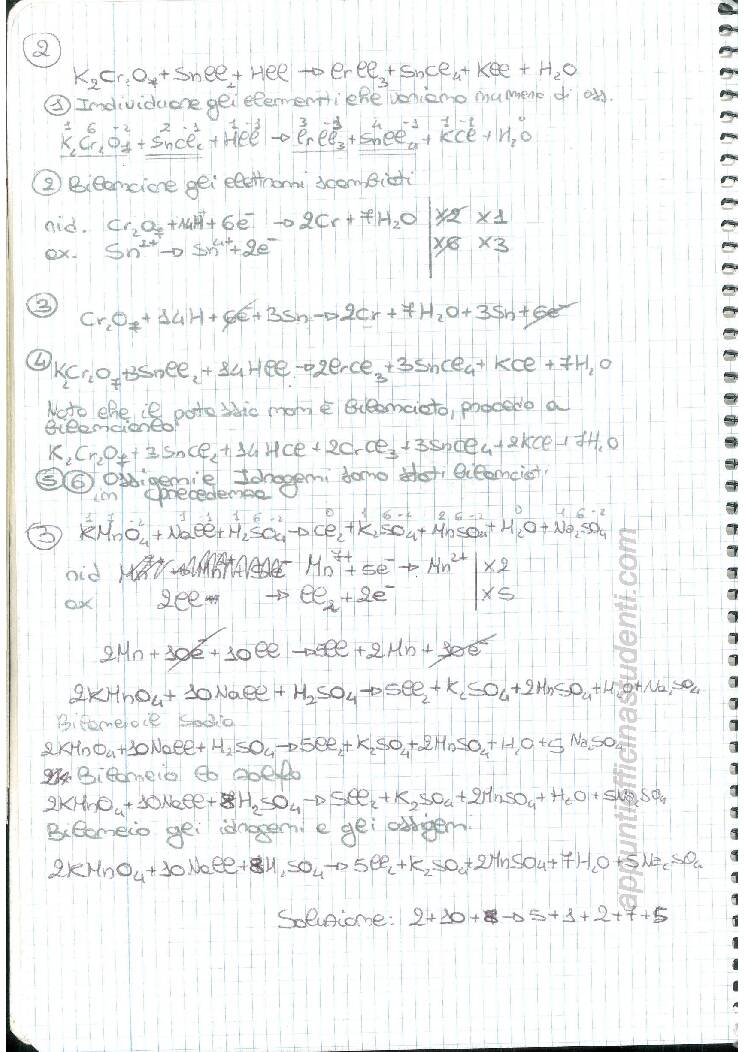 2
K₂Cr₂O₇ + SnCl₂ + HCl → CrCl₃ + SnCl₄ + KCl + H₂O
① Individuare gli elementi che variano numero di oss.
1 6 -2 2 -1 1 -1 3 -1 4 -1 1 -1
K₂Cr₂O₇ + SnCl₂ + HCl → CrCl₃ + SnCl₄ + KCl + H₂O
② Bilanciare gli elettroni scambiati
rid. Cr₂O₇ + 14H⁺ + 6e⁻ → 2Cr + 7H₂O | x2 x1
ox. Sn²⁺ → Sn⁴⁺ + 2e⁻ | x6 x3
③ Cr₂O₇ + 14H + 6e⁻ + 3Sn → 2Cr + 7H₂O + 3Sn + 6e⁻
④ K₂Cr₂O₇ + 3SnCl₂ + 14HCl → 2CrCl₃ + 3SnCl₄ + KCl + 7H₂O
Noto che il potassio non è bilanciato, procedo a
bilanciarlo
K₂Cr₂O₇ + 3SnCl₂ + 14HCl + 2CrCl₃ + 3SnCl₄ + 2KCl + 7H₂O
⑤ ⑥ Ossigeni e Idrogeni sono stati bilanciati
in precedenza
1 7 -2 1 -1 1 6 -2 0 1 6 -2 2 6 -2 0 1 6 -2
3 KMnO₄ + NaCl + H₂SO₄ → Cl₂ + K₂SO₄ + MnSO₄ + H₂O + Na₂SO₄
rid Mn⁷⁺ + 5e⁻ → Mn²⁺ | x2
ox 2Cl⁻ → Cl₂ + 2e⁻ | x5
2Mn + 10e⁻ + 10Cl → 5Cl + 2Mn + 10e⁻
2KMnO₄ + 10NaCl + H₂SO₄ → 5Cl₂ + K₂SO₄ + 2MnSO₄ + H₂O + Na₂SO₄
Bilancio il Sodio
2KMnO₄ + 10NaCl + H₂SO₄ → 5Cl₂ + K₂SO₄ + 2MnSO₄ + H₂O + 5 Na₂SO₄
Bilancio lo zolfo
2KMnO₄ + 10NaCl + 8H₂SO₄ → 5Cl₂ + K₂SO₄ + 2MnSO₄ + H₂O + 5Na₂SO₄
Bilancio gli idrogeni e gli ossigeni
2KMnO₄ + 10NaCl + 8H₂SO₄ → 5Cl₂ + K₂SO₄ + 2MnSO₄ + 7H₂O + 5Na₂SO₄
Soluzione: 2+10+8 → 5+1+2+7+5
appuntiofficinastudenti.com